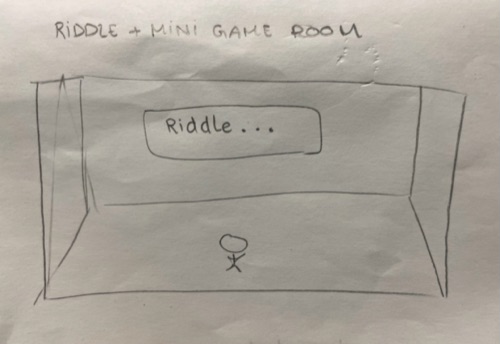 RiDDLE + MiNi GAME ROOM
Riddle...